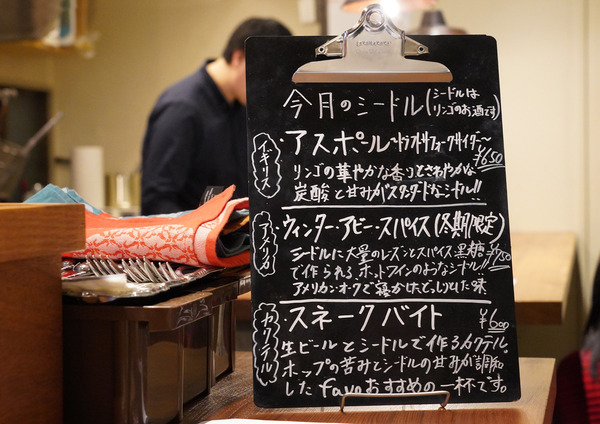 今月のシードル(シードルは
リンゴのお酒です)
イギリス
アスポール ~ドラフトサフォークサイダー~
¥650
リンゴの華やかな香りとさわやかな
炭酸と甘みがスタンダードなシードル!!
アメリカ
ウィンター・アビー・スパイス(冬期限定)
シードルに大量のレーズンとスパイス、黒糖
¥750
で作られる、ホットワインのようなシードル!!
アメリカンオークで寝かせ、どっしりとした味
カクテル
スネークバイト
¥600
生ビールとシードルで作るカクテル。
ホップの苦みとシードルの甘みが調和
した favoおすすめの一杯です。